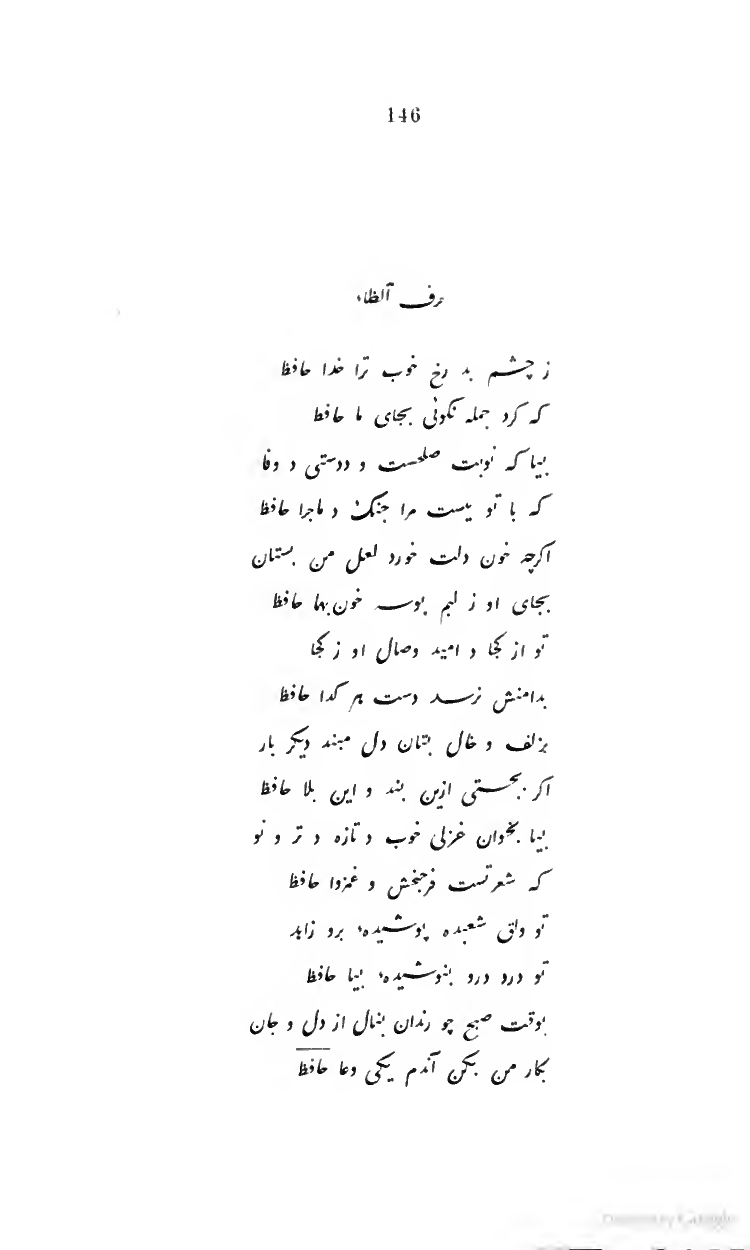 146
حرف آلظاء
ز چشم بد رخ خوب ترا خدا حافظ
که کرد جمله نکوئی بجای ما حافظ
بیا که نوبت صلحست و دوستی و وفا
که با تو نیست مرا جنک و ماجرا حافظ
اکرچه خون دلت خورد لعل من بستان
بجای او ز لبم بوسه خون بها حافظ
تو از کجا و امید وصال او ز کجا
بدامنش نرسد دست هر کدا حافظ
بزلف و خال بتان دل مبند دیکر بار
اکر بجستی ازین بند و این بلا حافظ
بیا بخوان غزلی خوب و تازه و تر و نو
که شعر تست فرحبخش و غمزدا حافظ
تو دلق شعبده پوشیدهٔ برو زاهد
تو درد درد بنوشیدهٔ بیا حافظ
بوقت صبح چو رندان بنال از دل و جان
بکار من بکن آندم یکی دعا حافظ